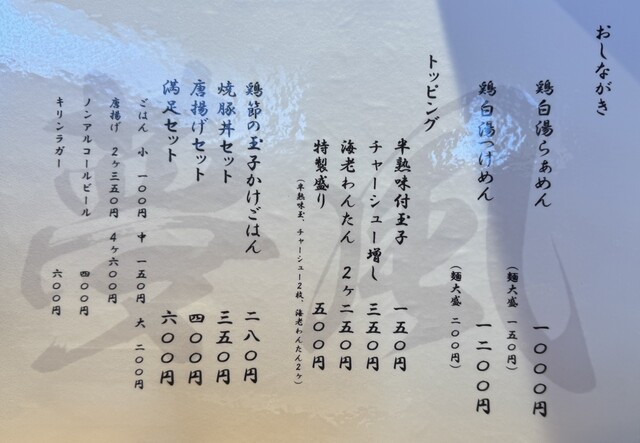 おしながき
鶏白湯らぁめん 一〇〇〇円
(麺大盛 一五〇円)
鶏白湯つけめん 一二〇〇円
(麺大盛 二〇〇円)
トッピング
半熟味付玉子 一五〇円
チャーシュー増し 三五〇円
海老わんたん 2ヶ 二五〇円
特製盛り 五〇〇円
(半熟味玉、チャーシュー2枚、海老わんたん2ヶ)
鶏節の玉子かけごはん 二八〇円
焼豚丼セット 三五〇円
唐揚げセット 四〇〇円
満足セット 六〇〇円
ごはん 小 一〇〇円 中 一五〇円 大 二〇〇円
唐揚げ 2ヶ三五〇円 4ヶ六〇〇円
ノンアルコールビール 四〇〇円
キリンラガー 六〇〇円